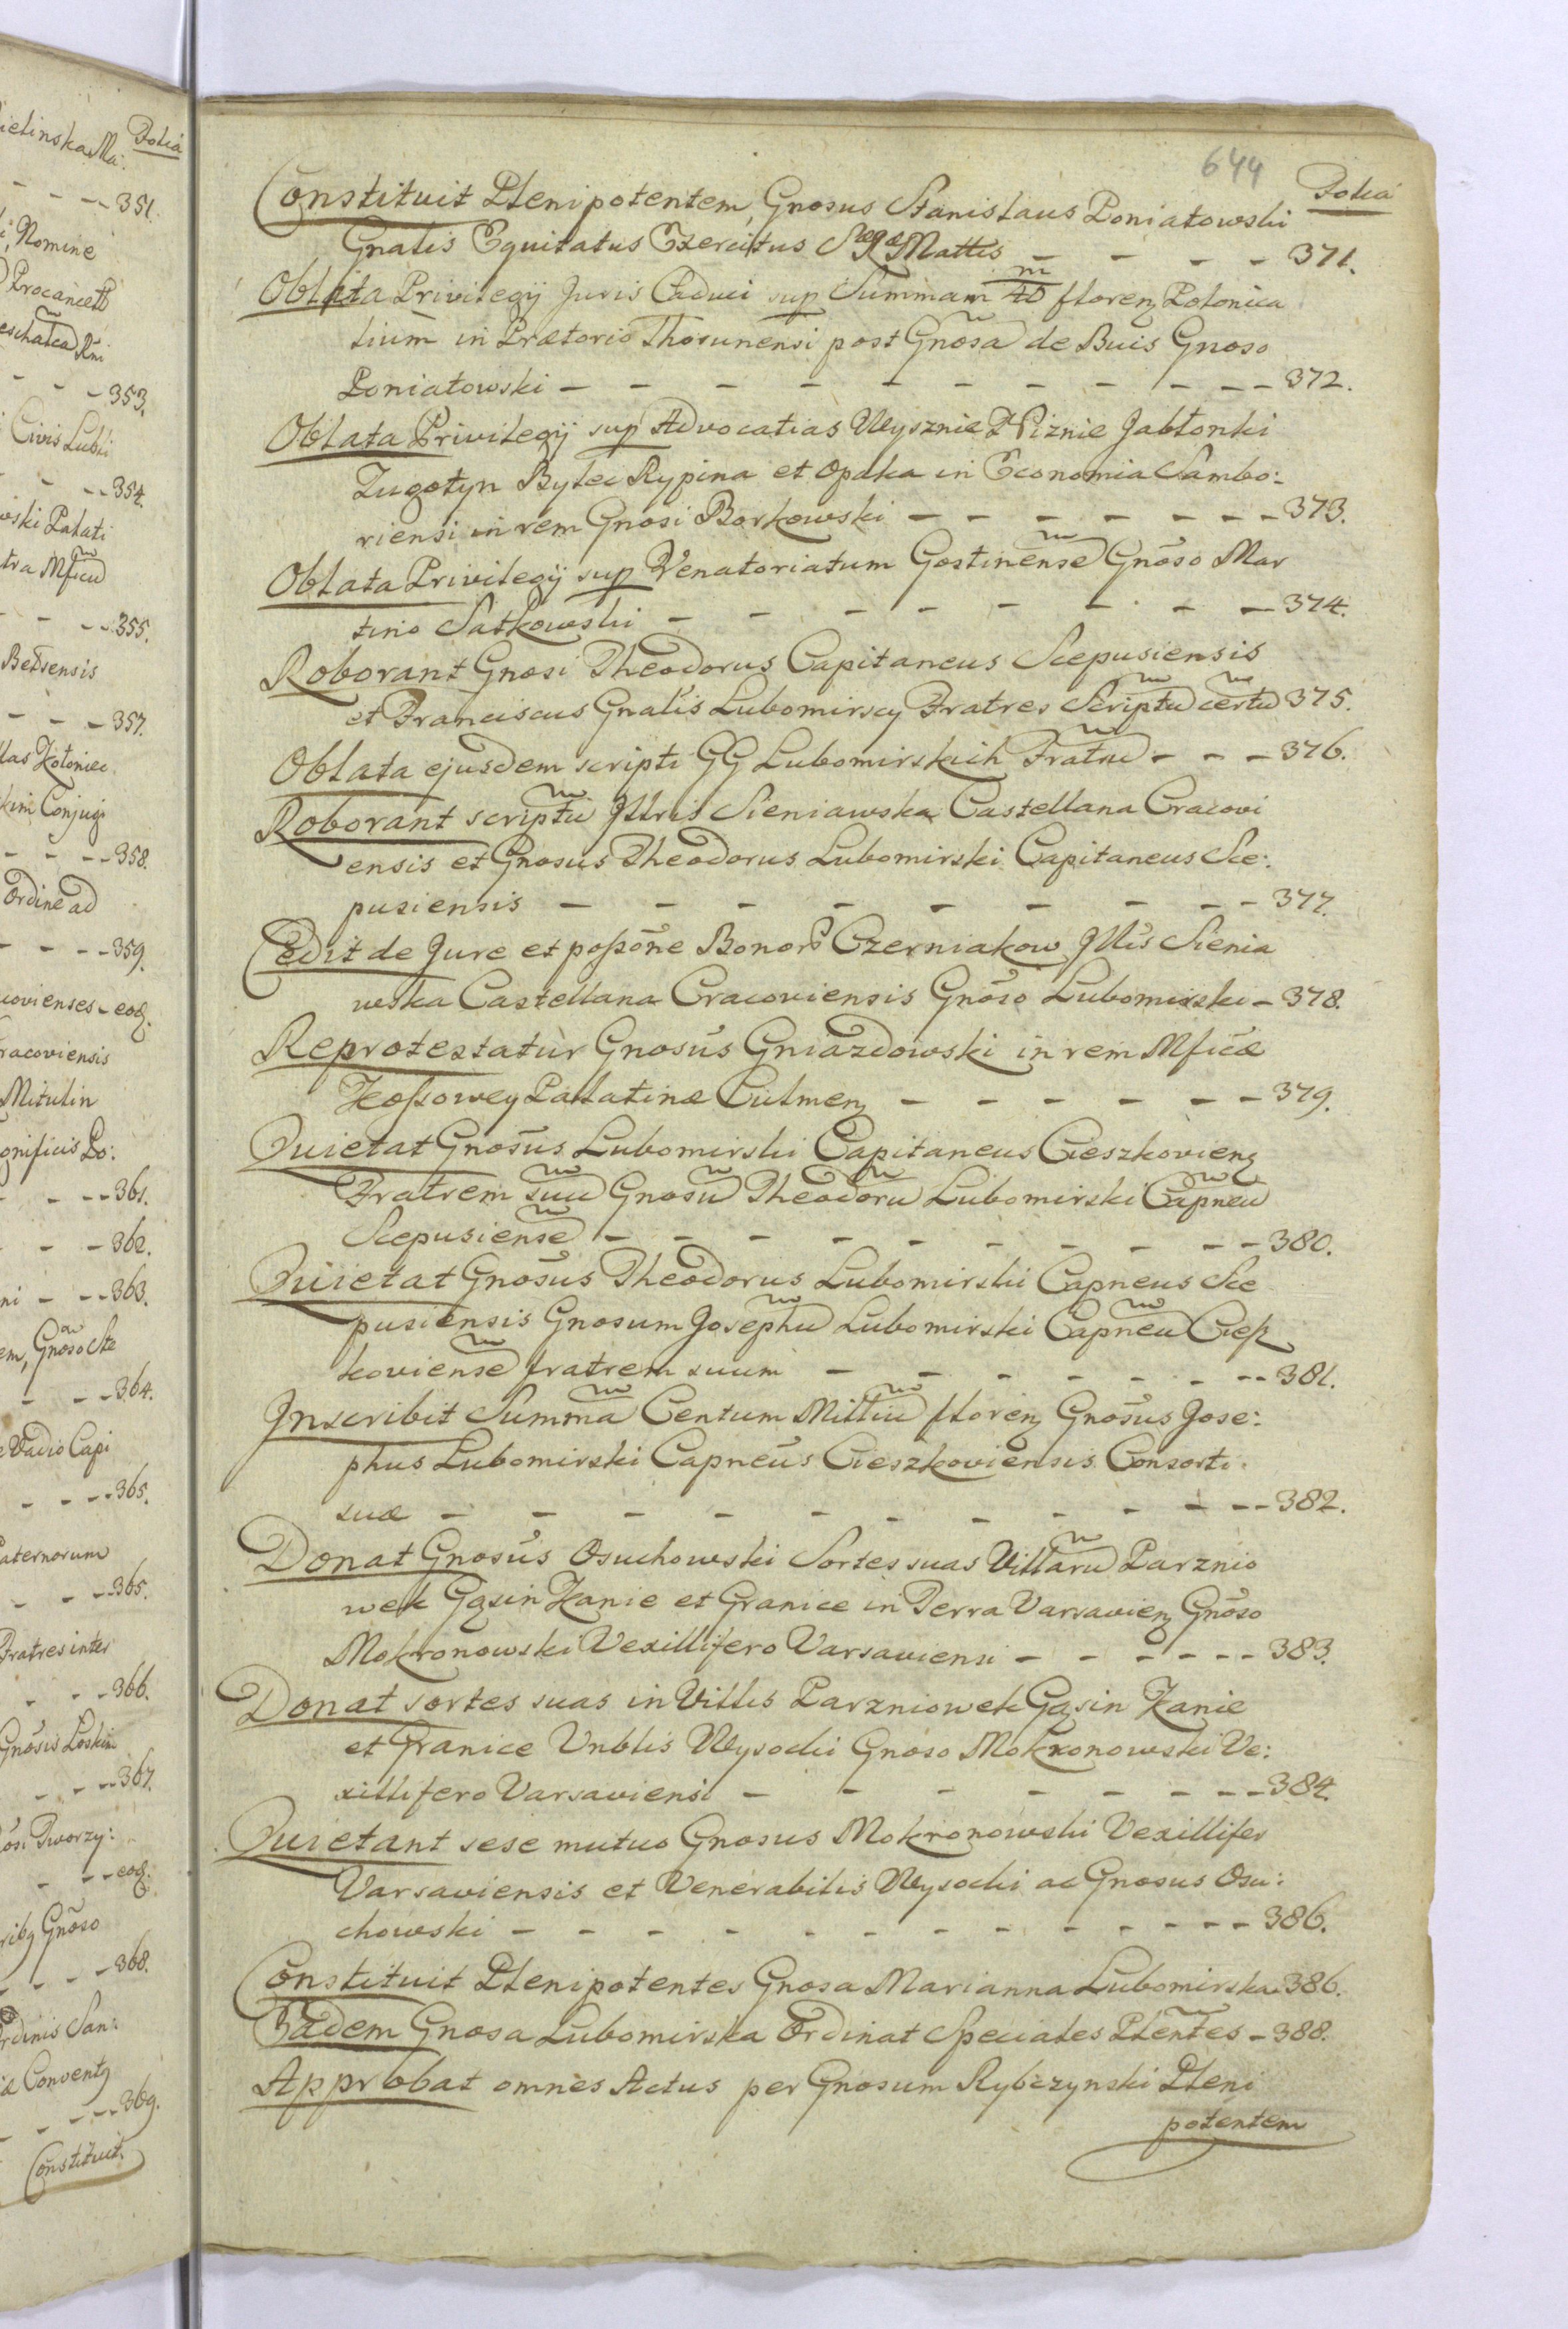 ielinska Ma: Folia
351.
Nomine
Procancell
353.
Civis Lubli
354.
wski Palati
tra Mficu
355.
Belzensis
357.
358.
Ordine ad
359.
covienses - eod.
racoviensis
Mitulin
gnificis Po:
361.
362.
ni - - - 363.
em, Gnoso Ste
364.
e Vadio Capi
365.
aternorum
365.
Fratres inter
366.
Gnosis Loskim
367.
osi Tworzy:
eod:
Gnoso
368.
rdinis San:
Convent
369.
Constituit.
644
Folia
Constituit Plenipotentem, Gnosus Stanislaus Poniatowski
Gnalis Equitatus Exercitus S Ræ Mattis - - - - 371.
Oblata Privilegij Juris Caduci sup Summam 40 m floren Polonica
lium in Prætorio Thorunensi post Gnosa de Buis Gnoso
Poniatowski - - - - - - - - - - 372.
Oblata Privilegij sup Advocatias Wysznie & Niznie Jablonki
Zugotyn Bylec Rypina et Opaka in Economia Sambo:
riensi in rem Gnosi Borkowski - - - - - - - 373.
Oblata Privilegij sup Venatoriatum Gostinense Gnoso Mar
tino Satkowski - - - - - - - - 374.
Roborant Gnosi Theodorus Capitaneus Scepusiensis
et Franciscus Gnalis Lubomirscy Fratres Scriptu certu 375.
Oblata ejusdem scripti GG Lubomirskich Fratru - - - 376.
Roborant scriptu Jllris Sieniawska Castellana Cracovi
ensis et Gnosus Theodorus Lubomirski Capitaneus Sce:
pusiensis - - - - - - - - - 377.
Cedit de Jure et possõne Bonor Czerniakow Jllis Sienia
wska Castellana Cracoviensis Gnoso Lubomirski - 378.
Reprotestatur Gnosus Gniazdowski in rem Mficæ
Kossowey Pallatinæ Culmen - - - - - - 379.
Quietat Gnosus Lubomirski Capitaneus Cieszkovien
Fratrem suu Gnosu Theodoru Lubomirski Capneu
Scepusiense - - - - - - - - - - 380.
Quietat Gnosus Theodorus Lubomirski Capneus Sce
pusiensis Gnosum Josephu Lubomirski Capneu Ciesz
koviense fratrem suum - - - - - - - 381.
Jnscribit Summa Centum Milliu floren Gnosus Jose:
phus Lubomirski Capneus Cieszkoviensis Consorti
suæ - - - - - - - - - - - - 382.
Donat Gnosus Osuchowski Sortes suas Villaru Parznio
wek Gąsin Kanie et Granice in Terra Varsavien Gnoso
Mokronowski Vexillifero Varsaviensi - - - - - - 383.
Donat sortes suas in Villis Parzniowek Gąsin Kanie
et Granice Vnblis Wysocki Gnoso Mokronowski Ve:
xillifero Varsaviensi - - - - - - - - 384.
Quietant sese mutuo Gnosus Mokronowski Vexillifer
Varsaviensis et Venerabilis Wysocki ac Gnosus Osu:
chowski - - - - - - - - - - - - 386.
Constituit Plenipotentes Gnosa Marianna Lubomirska 386.
Eadem Gnosa Lubomirska Ordinat Speciales Plentes - 388.
Approbat omnes Actus per Gnosum Rybczynski Pleni
potentem